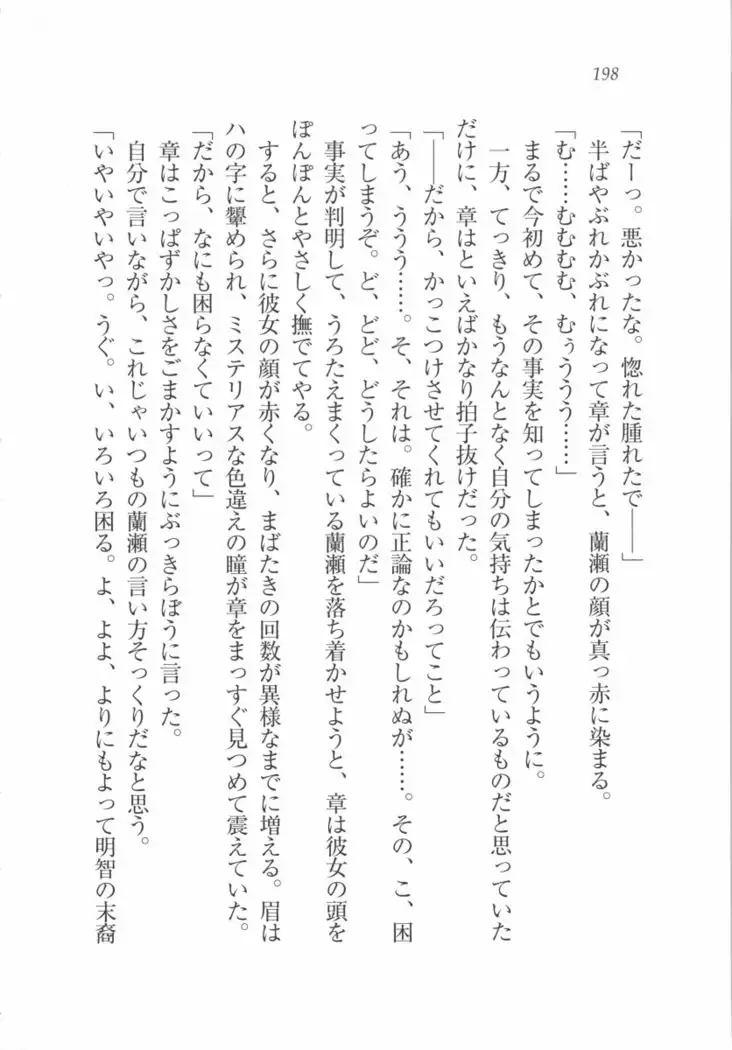 198
「だーっ。悪かったな。惚れた腫れたで――」
半ばやぶれかぶれになって章が言うと、蘭瀬の顔が真っ赤に染まる。
「む……むむむむ、むぅううう……」
まるで今初めて、その事実を知ってしまったかとでもいうように。
一方、てっきり、もうなんとなく自分の気持ちは伝わっているものだと思っていた
だけに、章はといえばかなり拍子抜けだった。
「――だから、かっこつけさせてくれてもいいだろってこと」
「あう、ううう……。そ、それは。確かに正論なのかもしれぬが……。その、こ、困
ってしまうぞ。ど、どど、どうしたらよいのだ」
事実が判明して、うろたえまくっている蘭瀬を落ち着かせようと、章は彼女の頭を
ぽんぽんとやさしく撫でてやる。
すると、さらに彼女の顔が赤くなり、まばたきの回数が異様なまでに増える。眉は
ハの字に顰められ、ミステリアスな色違えの瞳が章をまっすぐ見つめて震えていた。
「だから、なにも困らなくていいって」
章はこっぱずかしさをごまかすようにぶっきらぼうに言った。
自分で言いながら、これじゃいつもの蘭瀬の言い方そっくりだなと思う。
「いやいやいやっ。うぐ。い、いろいろ困る。よ、よよ、よりにもよって明智の末裔